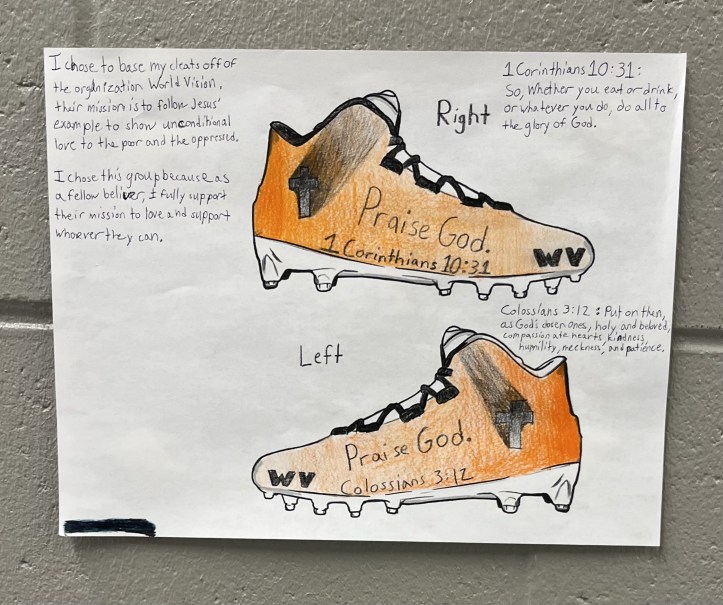 I chose to base my cleats off of
the orgnization World Vision,
their mission is to follow Jesus'
example to show unconditional
love to the poor and the oppressed.
I chose this group because as
a fellow beliver, I fully support
their mission to love and support
whoever they can.
Right
1 Corinthians 10:31:
So, Whether you eat or drink,
or whatever you do, do all to
the glory of God.
Praise God.
1 Corinthians 10:31
WV
Colossians 3:12: Put on then,
as God's chosen ones, holy and beloved,
compassionate hearts, kindness,
humility, meekness, and patience.
Left
Praise God.
Colossians 3:12
WV